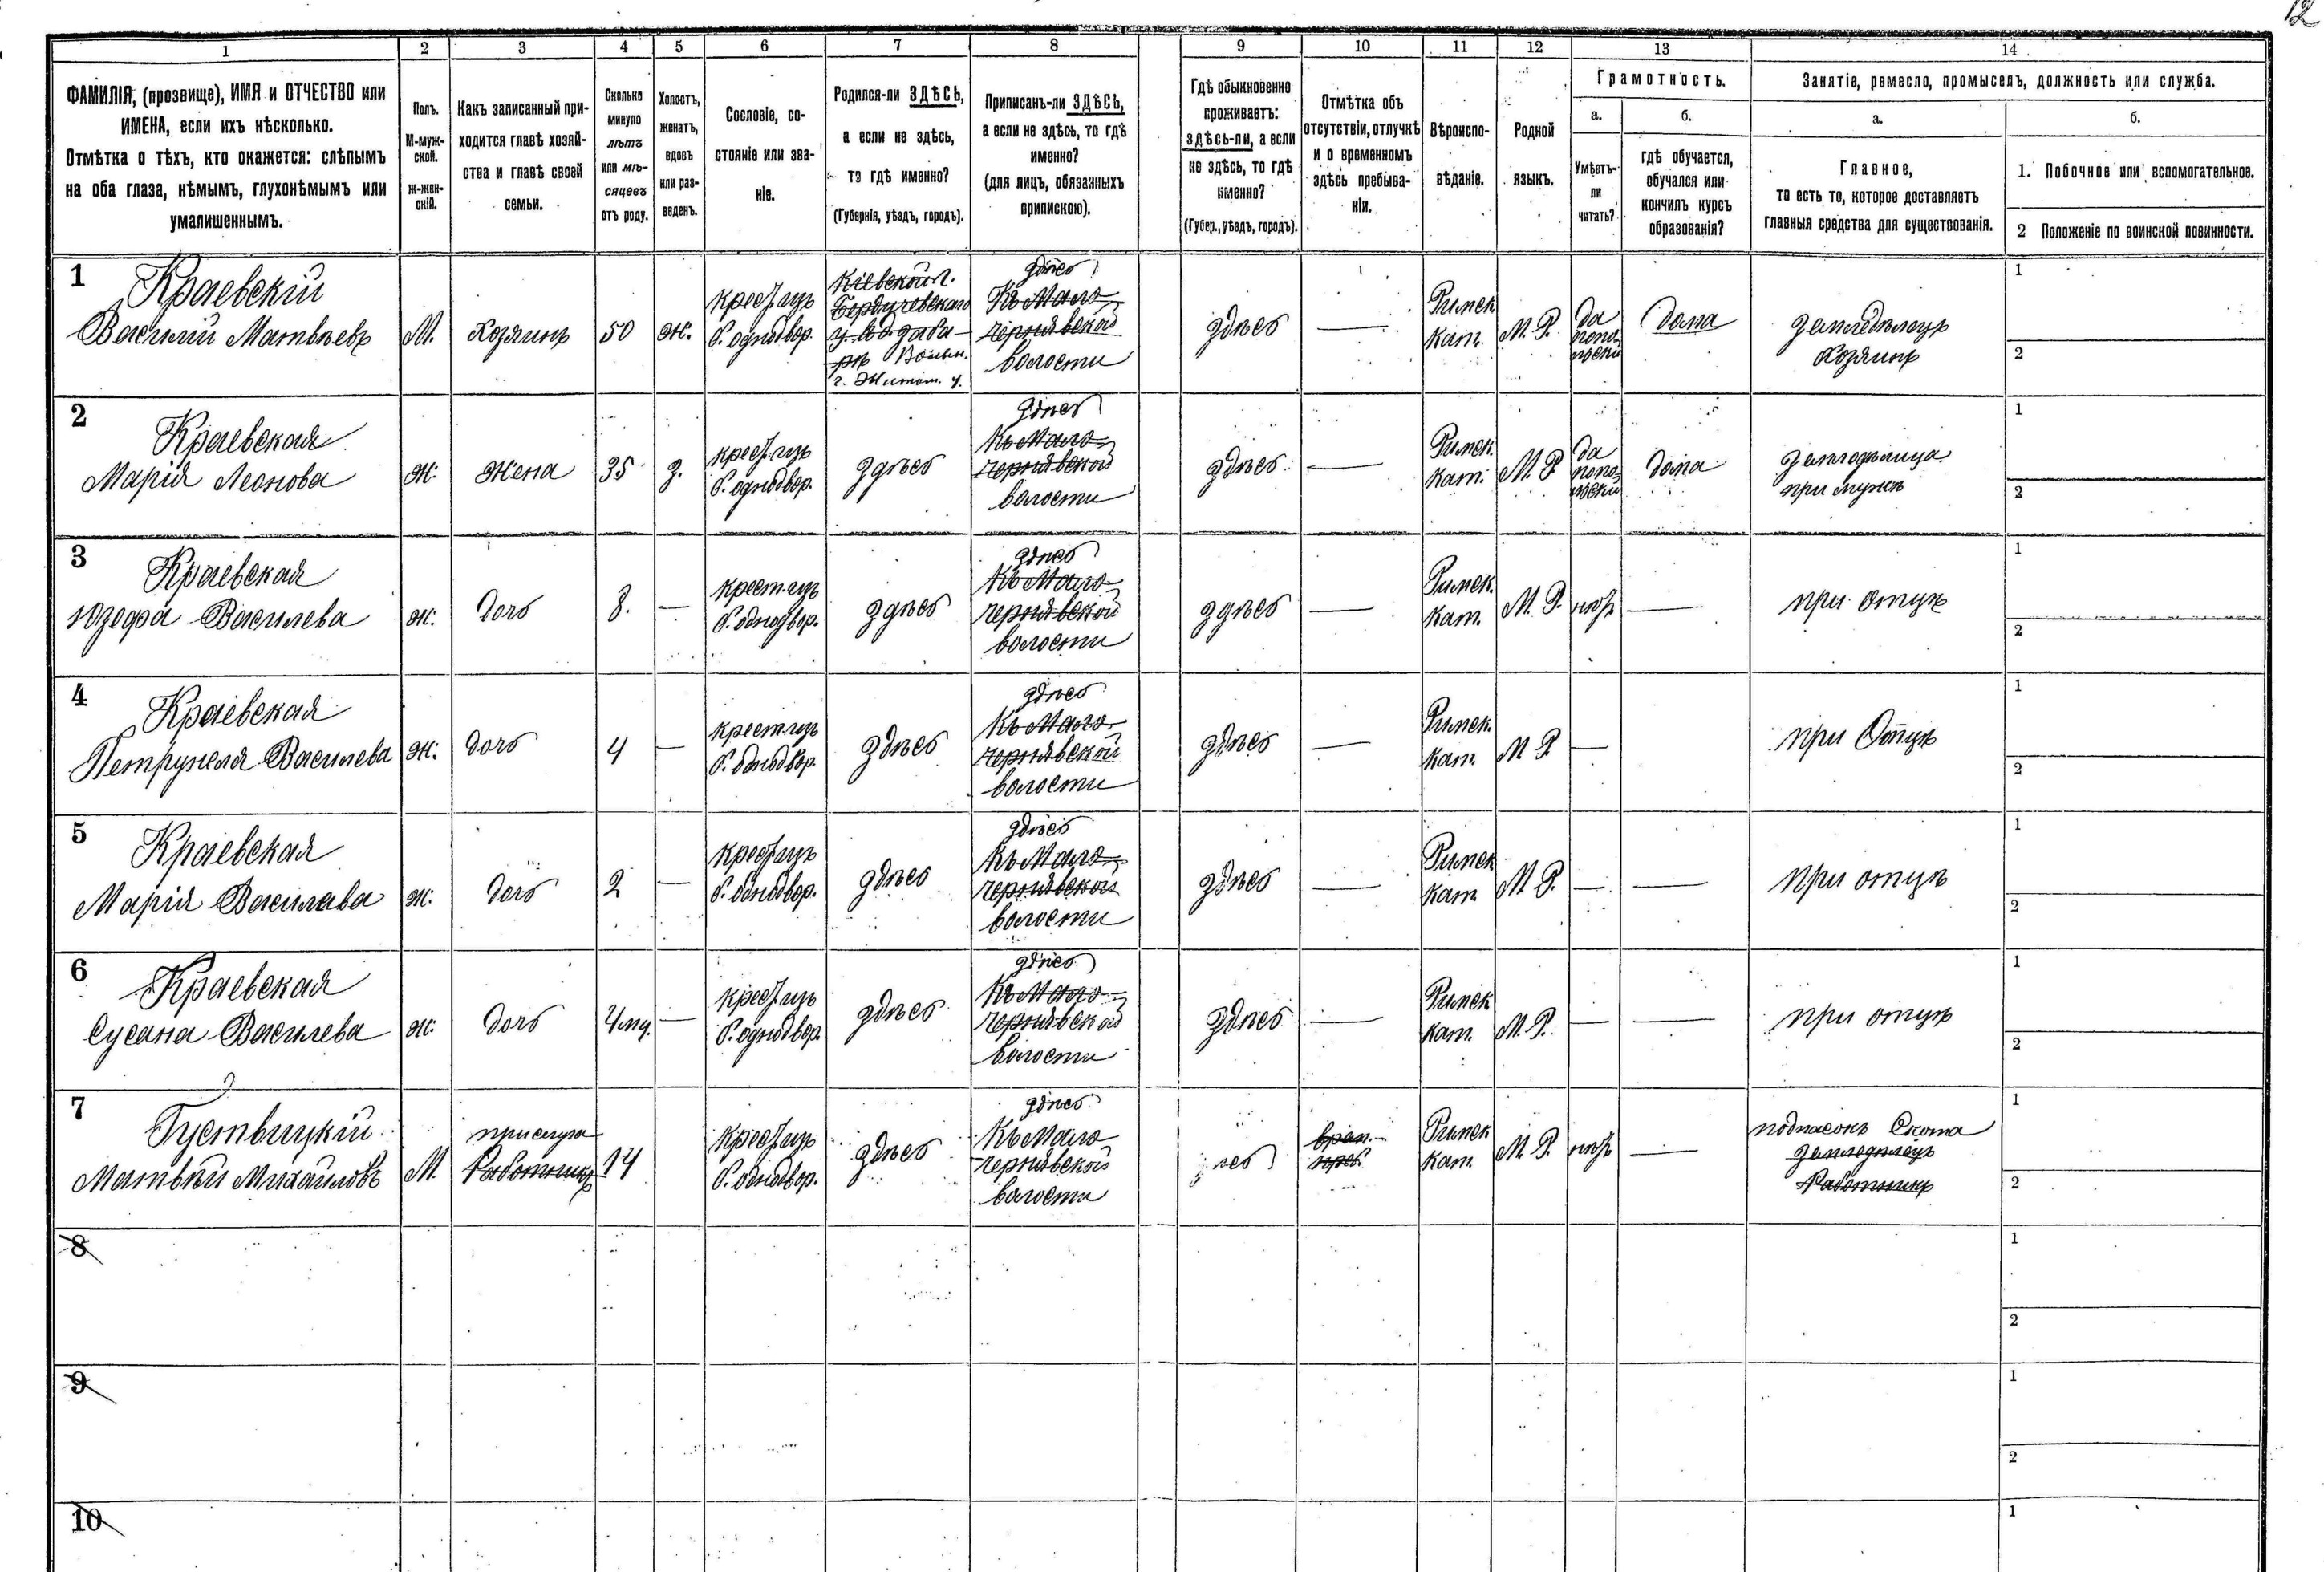 12
1 2 3 4 5 6 7 8 9 10 11 12 13 14
ФАМИЛІЯ, (прозвище), ИМЯ и ОТЧЕСТВО или
ИМЕНА, если ихъ нѣсколько.
Отмѣтка о тѣхъ, кто окажется: слѣпымъ
на оба глаза, нѣмымъ, глухонѣмымъ или
умалишеннымъ.
Полъ.
М-муж-
ской.
Ж-жен-
скій.
Какъ записанный при-
ходится главѣ хозяй-
ства и главѣ своей
семьи.
Сколько
минуло
лѣтъ
или мѣ-
сяцевъ
отъ роду.
Холостъ,
женатъ,
вдовъ
или раз-
веденъ.
Сословіе, со-
стояніе или зва-
ніе.
Родился-ли ЗДѢСЬ,
а если не здѣсь,
то гдѣ именно?
(Губернія, уѣздъ, городъ).
Приписанъ-ли ЗДѢСЬ,
а если не здѣсь, то гдѣ
именно?
(для лицъ, обязанныхъ
припискою).
Гдѣ обыкновенно
проживаетъ:
здѣсь-ли, а если
не здѣсь, то гдѣ
именно?
(Губер., уѣздъ, городъ).
Отмѣтка объ
отсутствіи, отлучкѣ
и о временномъ
здѣсь пребыва-
ніи.
Вѣроиспо-
вѣданіе.
Родной
языкъ.
Грамотность.
а.
Умѣетъ-
ли
читать?
б.
гдѣ обучается,
обучался или
кончилъ курсъ
образованія?
Занятія, ремесло, промыселъ, должность или служба.
а.
Главное,
то есть то, которое доставляетъ
главныя средства для существованія.
б.
1. Побочное или вспомогательное.
2 Положеніе по воинской повинности.
1
Краевскій
Василій Матвѣевъ
М.
Хозяинъ
50
ж.
Крест. изъ
б. однодвор.
Кіевской г.
Бердичевскаго
Волын.
г. Житом. у.
здѣсь
Къ Мало-
чернявской
волости
здѣсь
—
Римск.
Кат.
М. Р.
да
попо-
льски
дома
земледѣлецъ
Хозяинъ
1
2
2
Краевская
Марія Леонова
ж.
Жена
35
з.
крест. изъ
б. однодвор.
здѣсь
здѣсь
Къ Мало-
чернявской
волости
здѣсь
—
Римск.
Кат.
М. Р.
да
попо-
льски
дома
земледѣлица
при мужѣ
1
2
3
Краевская
Юзефа Василева
ж.
Дочь
8.
—
крест. изъ
б. однодвор.
здѣсь
здѣсь
Къ Мало-
чернявской
волости
здѣсь
—
Римск.
Кат.
М. Р.
нѣтъ
—
при отцѣ
1
2
4
Краевская
Петрунеля Василева
ж.
Дочь
4
—
крест. изъ
б. однодвор.
здѣсь
здѣсь
Къ Мало-
чернявской
волости
здѣсь
—
Римск.
Кат.
М. Р.
—
при Отцѣ
1
2
5
Краевская
Марія Василева
ж.
Дочь
2
—
крест. изъ
б. однодвор.
здѣсь
здѣсь
Къ Мало-
чернявской
волости
здѣсь
—
Римск.
Кат.
М. Р.
—
—
при отцѣ
1
2
6
Краевская
Сусана Василева
ж.
Дочь
—
крест. изъ
б. однодвор.
здѣсь
здѣсь
Къ Мало-
чернявской
волости
здѣсь
—
Римск.
Кат.
М. Р.
—
—
при отцѣ
1
2
7
Матвѣй Михайловъ
М.
прислуга
Работникъ
14
крест. изъ
б. однодвор.
здѣсь
здѣсь
Къ Мало-
чернявской
волости
врем.
преб.
Римск.
Кат.
М. Р.
нѣтъ
—
подпасокъ Скота
земледѣлецъ
Работникъ
1
2
8
1
2
9
1
2
10
1